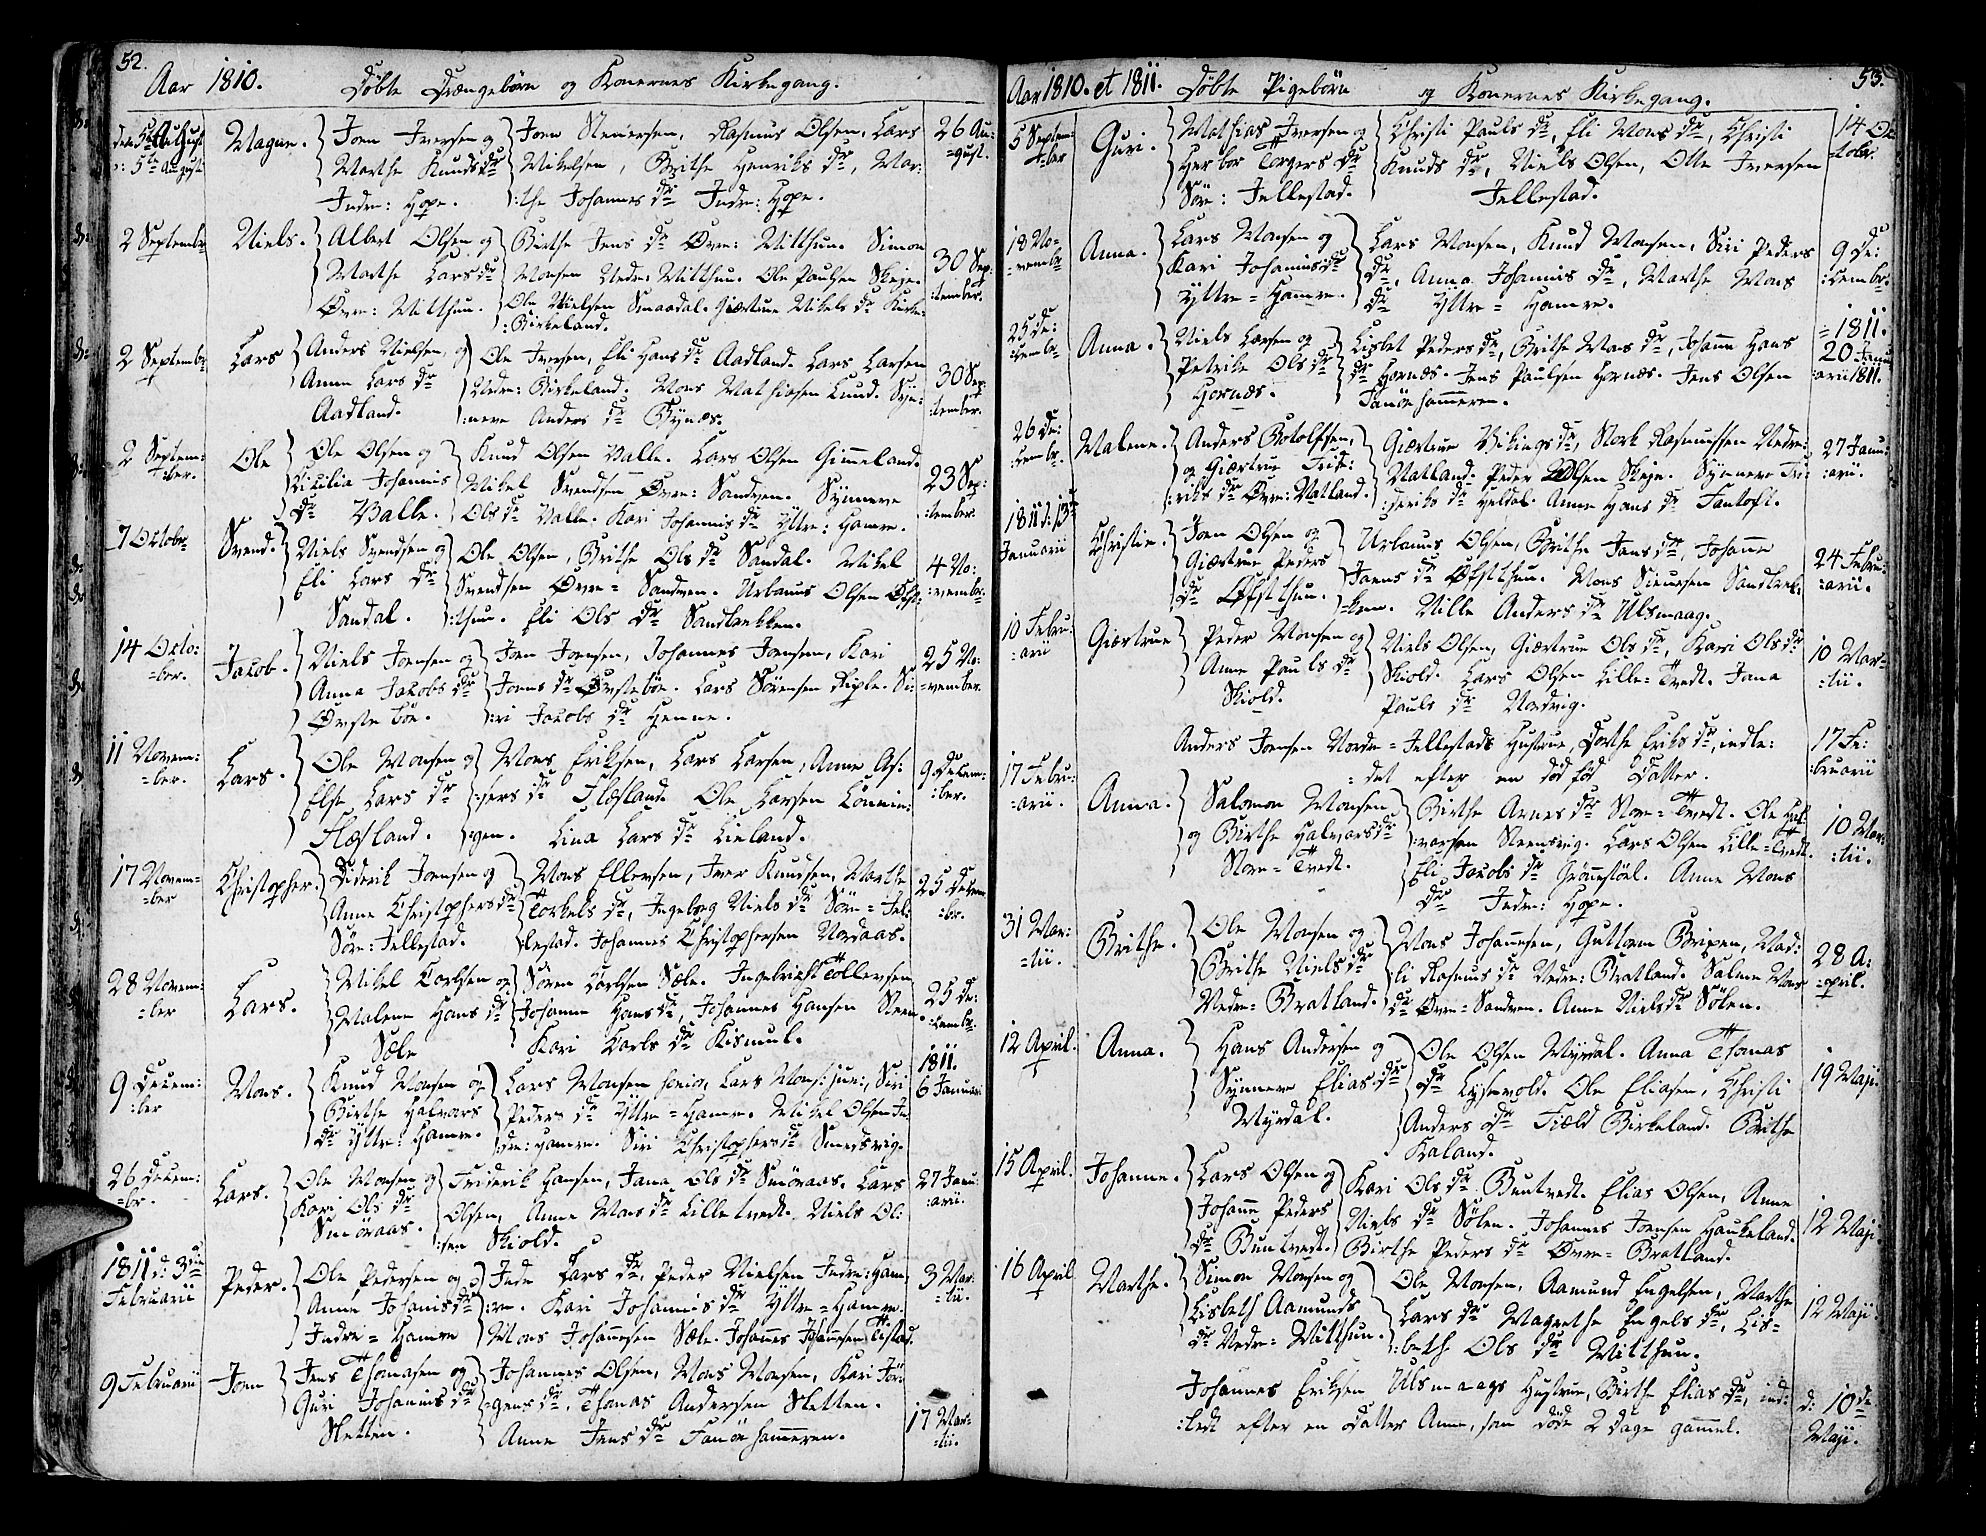 52.
Aar 1810. Døbte Drængebörn og Konernes Kirkegang.
d: 5te August
Magne.
Joen Iversen og
Marthe Knuds dr
Indre: Hope.
Joen Steenersen, Rasmus Olsen, Lars
Mikelsen, Brithe Henriks dr, Mar:
:the Johannes dr Indre: Hope.
26 Au:
=gust.
2 Septembr
Niels.
Albert Olsen og
Marthe Lars dr
Øvre: Titthun.
Birthe Jens dr Øvre: Titthun. Simon
Monsen Nedre: Titthun. Ole Paulsen Skeje.
Ole Nielsen Smaadal. Giærtrue Mikels dr Kirke:
:Birkeland.
30 Sep:
:tember.
2 Septembr
Lars
Anders Nielsen, og
Anna Lars dr
Aadland.
Ole Iversen, Eli Hans dr Aadland. Lars Larsen
Nedre: Birkeland. Mons Mathiasen Lund. Syn:
:neve Anders dr Bynæs.
30 Sep:
:tember.
2 Septem:
:ber.
Ole
Ole Olsen og
Cicilia Johannis
dr Valle.
Knud Olsen Valle. Lars Olsen Gimeland.
Mikel Svendsen Øvre: Sandven. Synneve
Ols dr Valle. Kari Johannis dr Yttre: Hamre.
23 Sep:
:tember.
7 Octobr
Svend.
Niels Svendsen og
Eli Lars dr
Sandal.
Ole Olsen, Brithe Ols dr Sandal. Mikel
Svendsen Øvre= Sandven. Urbanus Olsen Øfst:
:thun. Eli Ols dr Sandbrekken.
4 No:
:vembr
14 Octo:
=ber.
Jacob.
Niels Joensen og
Anna Jacobs dr
Øvste böe.
Joen Joensen, Johannes Joensen, Kari
Joens dr Øvsteböe. Lars Sörensen Riple. Si:
:ri Jacobs dr Henne.
25 No:
=vember.
11 Novem:
=ber.
Lars.
Ole Monsen og
Else Lars dr
Flæsland.
Mons Eriksen, Lars Larsen, Anne As:
:sers dr Flæsland. Ole Larsen Lönnin:
:gen. Lina Lars dr Lieland.
9 Decem:
:ber.
17 Novem=
=ber
Christopher.
Diderik Joensen og
Anne Christophers dr
Söre: Jellestad.
Mons Ellevsen, Iver Knudsen, Marthe
Torkels dr, Ingeborg Niels dr Söre= Jel:
:lestad. Johannes Christophersen Nordaas.
25 Decem
:br.
28 Novem:
=ber
Lars.
Mikel Carlsen og
Malene Hans dr
Sæle
Sören Carlsen Sæle. Ingebrigt Tollevsen
Johanne Hans dr, Johannes Hansen Steen
Kari Carls dr Kismul.
25 De:
:cembr.
9 Decem:
:ber
Mons.
Knud Monsen og
Birthe Halvors
dr Yttre: Hamre.
Lars Monsen senior, Lars Mons: jun:, Siri
Peders dr Yttre= Hamre. Mikel Olsen In
:dre: Hamre. Siri Christophers dr Smedsvig.
1811.
6 Januari
26 Decem:
=br.
Lars.
Ole Monsen og
Kari Ols dr
Smöraas.
Friderik Hansen, Jana Ols dr Smöraas. Lars
Olsen, Anne Mons dr Lilletvedt. Niels Ol:
:sen Skiold.
27 Janu
:arii.
1811 d: 3die
Februarii
Peder.
Ole Pedersen og
Anne Johanis dr
Indre= Hamre
Inde Lars dr, Peder Nielsen Indre: Ham
:re. Kari Johannis dr Yttre= Hamre.
Mons Johannesen Sæle. Johannes Johannesen Titlestad.
3 Mar:
=tii.
9 Februarii
Joen
Jens Thomasen og
Guri Johannis dr
Sletten.
Johannes Olsen, Mons Monsen, Kari Jör:
:gens dr, Thomas Andersen Sletten.
Anne Jens dr Fanöe hammeren.
17 Mar:
=tii.
Aar 1810. et 1811. Døbte Pigebörn og Konernes Kirkegang.
53.
5 Septem:
=ber
Guri.
Mathias Iversen og
Herbor Torgers dr
Söre: Jellestad.
Christi Pauls dr, Eli Mons dr, Christi
Knuds dr, Niels Olsen, Otte Iversen
Jellestad.
14 Oc
=tobr.
18 No=
=vembr
Anna.
Lars Monsen og
Kari Johannis dr
Yttre= Hamre.
Lars Monsen, Knud Monsen, Siri Peders
dr, Anna Johannis dr, Marthe Mons
dr Yttre= Hamre.
9 De:
:cembr.
25 De:
:cembr
Anna.
Niels Larsen og
Petrike Ols dr
Hornæs.
Lisbet Peders dr, Brithe Mons dr, Johanne Hans
dr Hornæs. Jens Paulsen Hornæs. Jens Olsen
Fanöehammeren.
=1811.
20 Janu
:arii 1811.
26 De:
:cembr.
Malene.
Anders Botolfsen,
og Giærtrue Frid:
:riks dr Øvre: Natland.
Giærtrue Vikings dr, Stork Rasmussen Nedre:
Natland. Peder Olsen Skeje. Synneve Fri:
:deriks dr Heldal. Anne Hans dr Fantoft.
27 Janu:
:arii.
1811 d: 13de
Januarii
Christie.
Joen Olsen og
Giærtrue Peders
dr Øfstthun.
Urbanus Olsen, Brithe Jans dr, Johanne
Joens dr Øfstthun. Mons Siversen Sandbrek:
=ken. Nille Anders dr Ulsmaag.
24 Febru:
:arii.
10 Febru:
=arii
Giærtrue
Peder Monsen og
Anne Pauls dr
Skiold.
Niels Olsen, Giærtrue Ols dr, Kari Ols dr
Skiold. Lars Olsen Lille= Tvedt. Jana
Pauls dr Nordvig.
10 Mar=
=tii.
Anders Joensen Nordre= Jellestads Hustrue, Dorthe Eriks dr, indle:
:det efter en död fød Datter.
17 Fe:
:bruarii
17 Febru:
=arii.
Anna.
Salomon Monsen
og Birthe Halvors dr
Store= Tvedt.
Birthe Arnes dr Store= Tvedt. Ole Hal:
:vorsen Steensvig. Lars Olsen Lille= Tvedt.
Eli Jacobs dr Grönnestöl. Anne Mons
dr Indre: Hope.
10 Mar:
:tii.
31 Mar:
=tii.
Brithe.
Ole Monsen og
Brithe Niels dr
Nedre= Bratland.
Mons Johannesen, Guttorm Bripen, Mad:
li Rasmus dr Nedre: Bratland. Salme Mons
dr Øvre= Sandven. Anne Niels dr Sölen.
28 A:
=pril.
12 April.
Anna.
Hans Andersen og
Synneve Elias dr
Myrdal.
Ole Olsen Myrdal. Anna Thomas
dr Lysevold. Ole Eliasen, Christi
Anders dr Tiæld Birkeland. Brithe
Kaland.
19 Maji.
15 April.
Johanne.
Lars Olsen og
Johanne Peders
dr Buntvedt.
Kari Ols dr Buntvedt. Elias Olsen, Anne
Niels dr Sölen. Johannes Joensen Haukeland.
Birthe Peders dr Øvre= Bratland.
12 Maji.
16 April
Marthe.
Simon Monsen og
Lisbeth Aamunds
dr Nedre: Titthun.
Ole Monsen, Aamund Engelsen, Marthe
Lars dr Magrethe Engels dr, Lis=
:beth Ols dr Titthun.
12 Maji.
Johannes Eriksen Ulsmaags Hustrue, Birthe Elias dr, ind:
:ledt efter en Datter Anne, som döde 2 Dage gammel.
d: 10de
Maji.